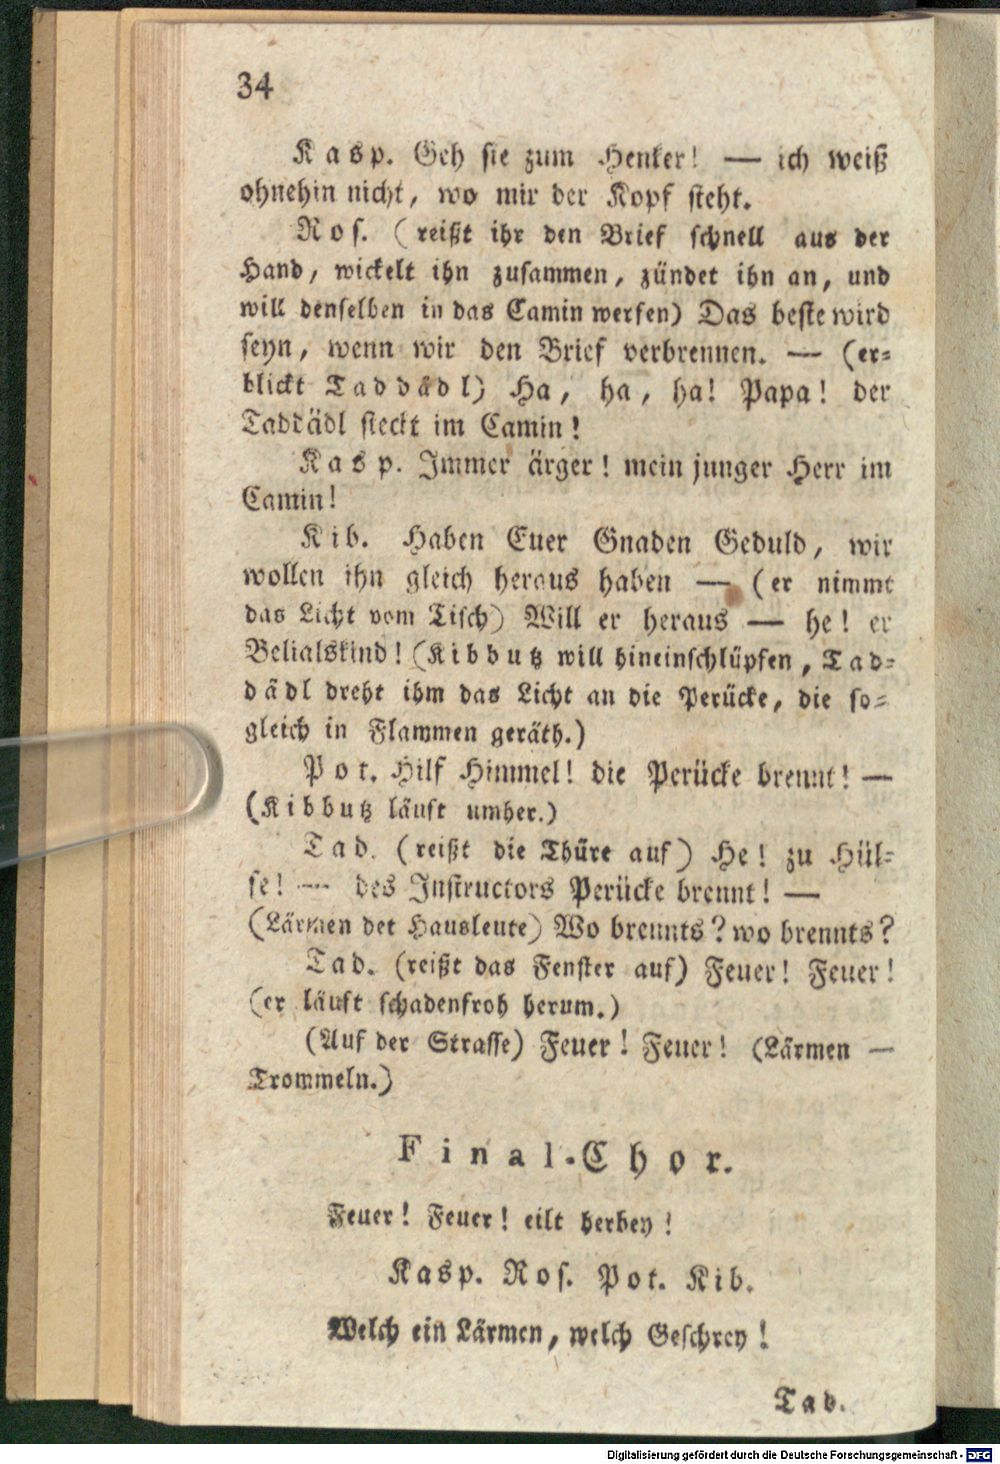 34
Kasp. Geh sie zum Henker! — ich weiß
ohnehin nicht, wo mir der Kopf steht.
Ros. (reißt ihr den Brief schnell aus der
Hand, wickelt ihn zusammen, zündet ihn an, und
will denselben in das Camin werfen) Das beste wird
seyn, wenn wir den Brief verbrennen. — (er-
blickt Taddädl) Ha, ha, ha! Papa! der
Taddädl steckt im Camin!
Kasp. Immer ärger! mein junger Herr im
Camin!
Kib. Haben Euer Gnaden Geduld, wir
wollen ihn gleich heraus haben — (er nimmt
das Licht vom Tisch) Will er heraus — he! er
Belialskind! (Kibbutz will hineinschlüpfen, Tad-
dädl dreht ihm das Licht an die Perücke, die so-
gleich in Flammen geräth.)
Pot. Hilf Himmel! die Perücke brennt! —
(Kibbutz läuft umher.)
Tad. (reißt die Thüre auf) He! zu Hül-
fe! — des Instructors Perücke brennt! —
(Lärmen det Hausleute) Wo brennts? wo brennts?
Tad. (reißt das Fenster auf) Feuer! Feuer!
(er läuft schadenfroh herum.)
(Auf der Strasse) Feuer! Feuer! (Lärmen —
Trommeln.)
Final-Chor.
Feuer! Feuer! eilt herbey!
Kasp. Ros. Pot. Kib.
Welch ein Lärmen, welch Geschrey!
Tad.
Digitalisierung gefördert durch die Deutsche Forschungsgemeinschaft - DFG